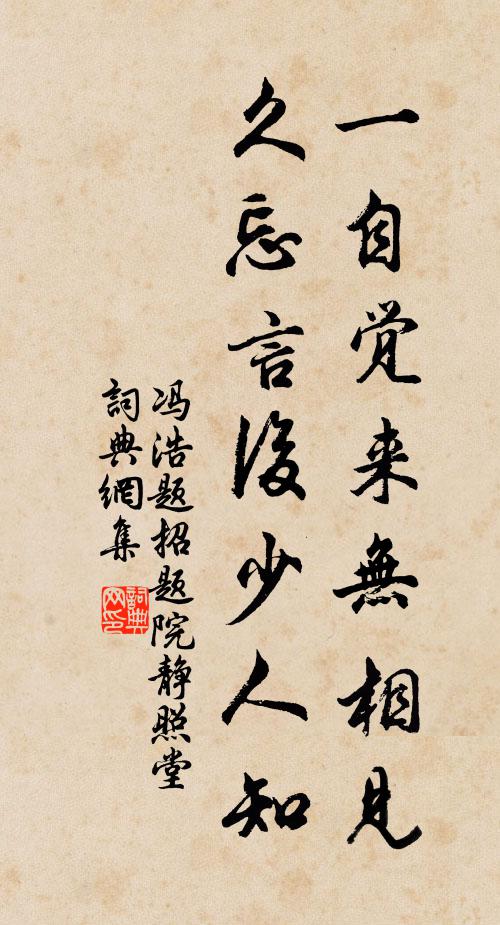 一自觉来無相見
久忘言後少人知
冯浩题招题院静照堂
詞典網集
詞典网印